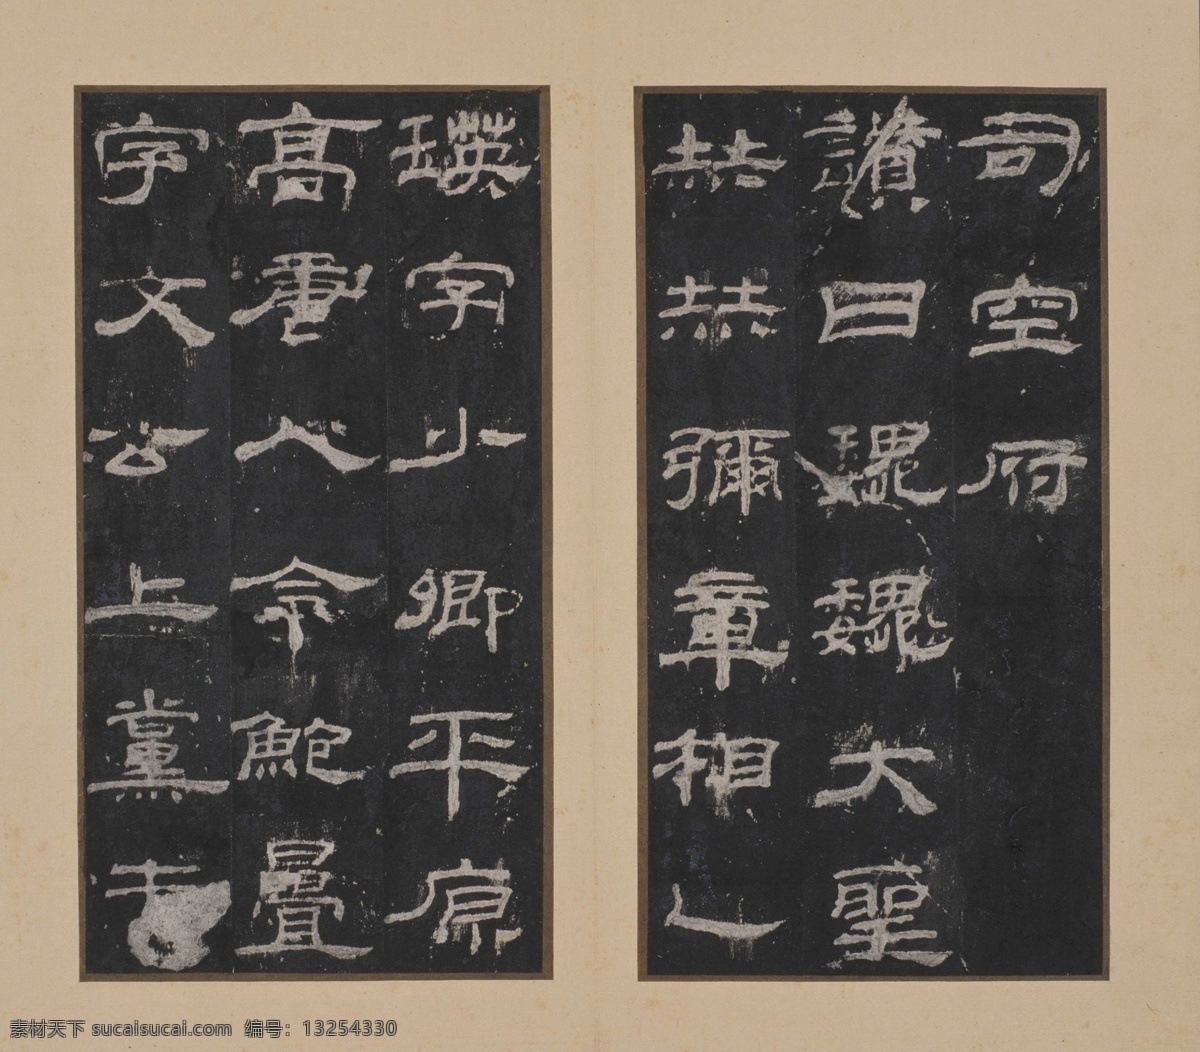 司空府
讚曰巍巍大聖
赫赫彌章相乙
瑛字少卿平原
高唐人令鮑疊
字文公上黨
素材天下 sucaisucai.com 编号：13254330